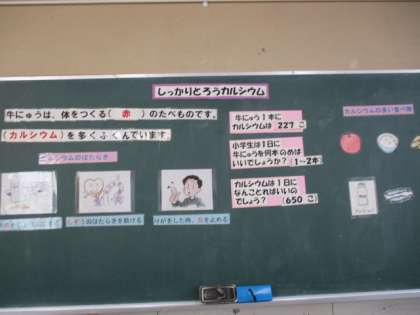 しっかりとろうカルシウム
牛にゅうは、体をつくる( 赤 )のたべものです。
(カルシウム)を多くふくんでいます。
カルシウムのはたらき
しんぞうのはたらきを助ける
けがをした時、血を止める
牛にゅう1本に
カルシウムは 227 こ
小学生は1日に
牛にゅうを何本のめば
いいでしょうか?(1~2本)
カルシウムは1日に
なんことればいいの
でしょう? (650 こ)
カルシウムの多い食べ物